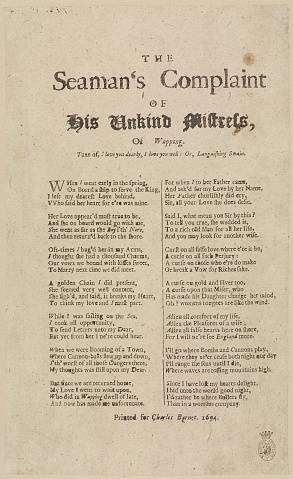 THE
Seaman's Complaint
OF
His Unkind Mistress,
Of Wapping.
Tune of, I love you dearly, I love you well: Or, Languishing Swain.
WHen I went early in the spring,
On Board a ship to serve the King,
I left my dearest Love behind,
Who said her heart for e're was mine.
Her Love appear'd most true to be,
And she on board would go with me,
She went as far as the
And then return'd back to the Shore.
Oft-times I hug'd her in my Arms,
I thought she had a thousand Charms,
Our vows we bound with kisses sweet,
To Marry next time we did meet.
A golden Chain I did present,
She seemed very well content,
She sigh'd, and said, it breaks my Heart,
To think my love and I must part.
While I was sailing on the Sea,
I took all opportunity,
To send Letters unto my Dear,
But yet from her I ne're could hear.
When we were Booming of a Town,
Where Cannon-balls flew up and down,
I'th' worst of all those Dangers there,
My thoughts was still upon my Dear.
But since we are return'd home,
My Love I went to wait upon,
Who did in Wapping dwell of late,
And now has made me unfortunate.
For when I to her Father came,
And ask'd for my Love by her Name,
Her Father churlishly did cry,
Sir, all your Love she does deny.
Said I, what mean you Sir by this?
To tell you true, she wedded is,
To a rich old Man for all her life,
And you may look for another wife.
Curst be all false love where e're it be,
A curse on all such Perjury:
A curse on those who e're do make
Or break a Vow for Riches sake.
A curse on gold and silver too,
A curse upon that Miser, who
Has made his Daughter change her mind,
Oh! womens tongues are like the wind.
Adieu all comfort of my life,
Adieu the Pleasures of a wife;
Adieu all false hearts here on shore,
For I will ne're see England more.
I'll go where Bombs and Cannons play,
Where they ne're cease both night nor day
I'll range the Seas until I die,
Where waves are tossing mountains high.
Since I have lost my hearts delight,
I bid unto the world good night,
I'd rather be where Bullets fly,
Than in a womans company.
Printed for Charles Barnet. 1694.